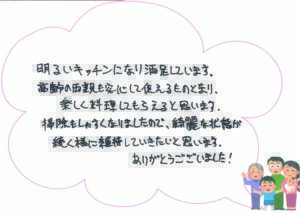 明るいキッチンになり満足しています。
高齢の両親も安心して使えるものとなり、
楽しく料理してもらえると思います。
掃除もしやすくなりましたので、綺麗な状態が
続く様に維持していきたいと思います。
ありがとうございました！